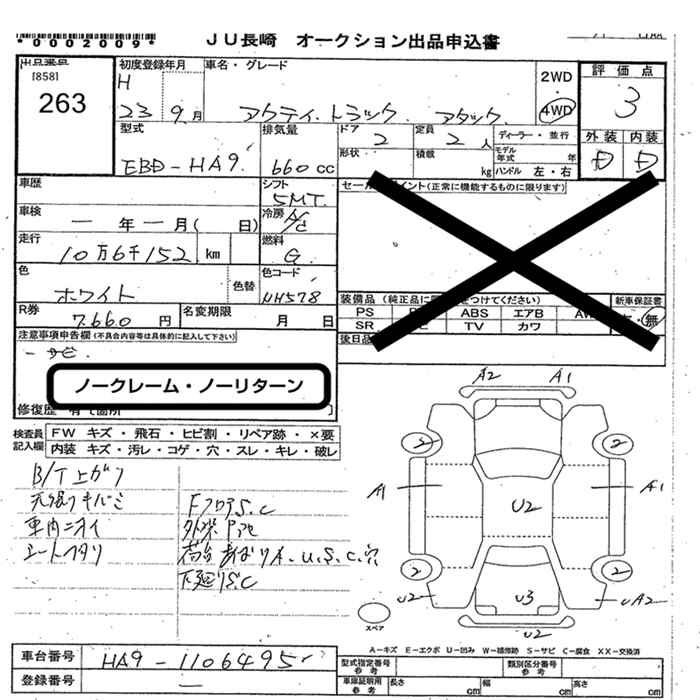 *0002009*
JU長崎 オークション出品申込書
[858]
263
初度登録年月
H
23 9月
車名・グレード
アクティ.トラック. アタック.
2WD
4WD
評価点
3
外装 内装
D D
型式
EBD-HA9.
排気量
660cc
ドア
2
定員
2人
ディーラー・並行
形状
積載
kg
モデル年式 年
ハンドル 左・右
車歴
シフト
5MT.
セールスポイント(正常に機能するものに限ります)
車検
― 年 ― 月( 日)
冷房
A/C
走行
10万6千152 km
燃料
G.
色
ホワイト
色替
色コード
NH578
R券
7.660円
名変期限
月 日
装備品(純正品に
をつけてください)
新車保証書
PS
ABS エアB
無
SR
TV カワ
後日品
注意事項申告欄(不具合内容等は具体的に記入して下さい)
ノークレーム・ノーリターン
修復歴
検査員記入欄
FW キズ・飛石・ヒビ割・リペア跡・×要
内装 キズ・汚レ・コゲ・穴・スレ・キレ・破レ
B/T上ガリ
天張りキバミ
車内ニオイ
シートヘタリ
FフロアS.C
荷台あおりA.U.S.C.穴
下廻りS.C
A2 A1
2 2
A1 U2 A1
2 2
U2 U3 UA2
U2
スペア
A-キズ E-エクボ U-凹み W-補修跡 S-サビ C-腐食 XX-交換済
車台番号
HA9-1106495
登録番号
―
型式指定番号
参考
類別区分番号
参考
車庫証明用
参考
長さ cm
幅 cm
高さ cm